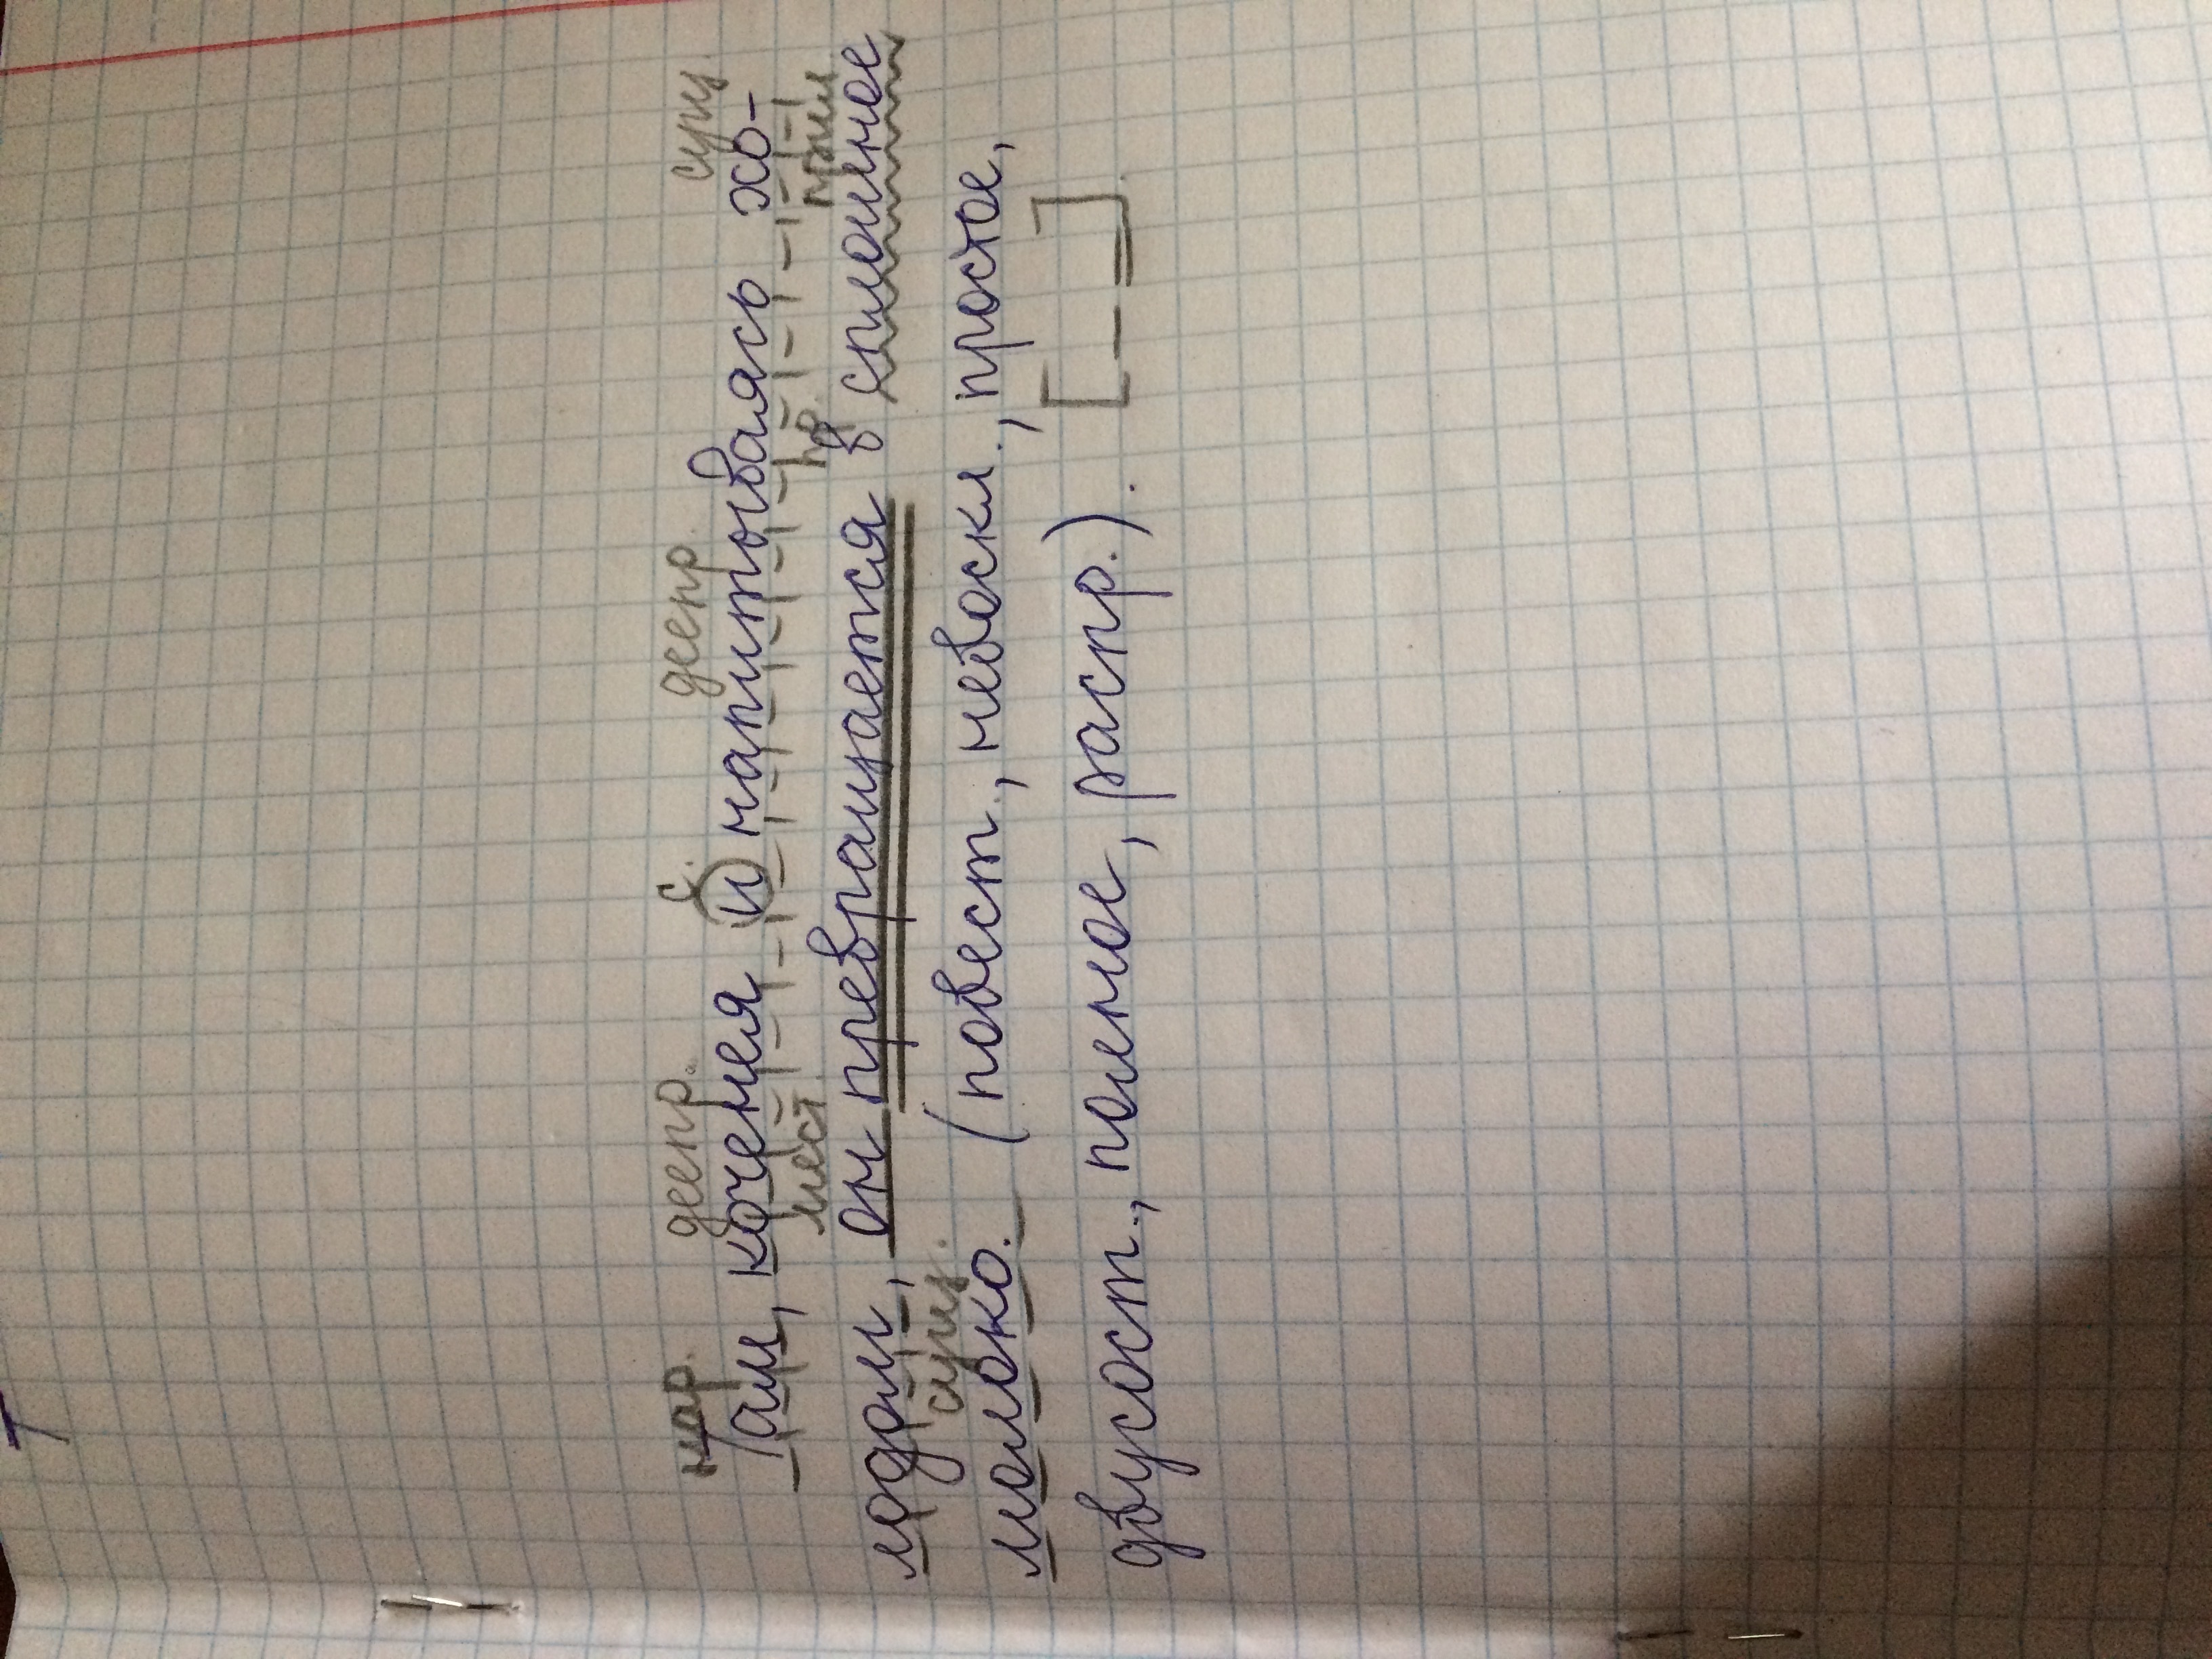 нар. деепр. с. деепр. сущ.
Там, коченея и напитываясь хо-
мест. пр. прил
лодом, он превращается в сплошное
сущ.
молоко. (повест., невоскл., простое,
двусост., полное, распр.). [ ].